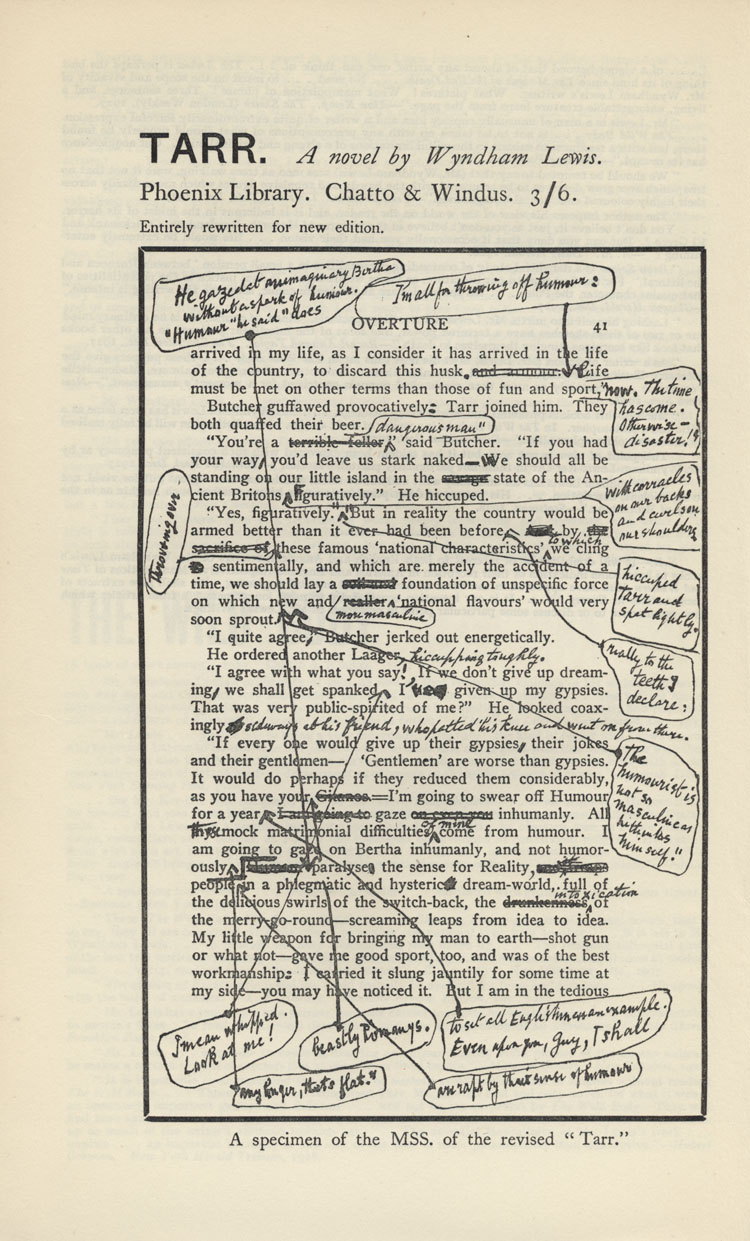 TARR. A novel by Wyndham Lewis.
Phoenix Library. Chatto & Windus. 3/6.
Entirely rewritten for new edition.
He gazed at an imaginary Bertha
without a spark of humour.
"Humour" he said "does
I'm all for throwing off humour:
OVERTURE 41
arrived in my life, as I consider it has arrived in the life
of the country, to discard this husk. and armour. Life
must be met on other terms than those of fun and sport,
now. The time
has come.
Otherwise—
disaster!"
Butcher guffawed provocatively: Tarr joined him. They
both quaffed their beer.
dangerous man"
"You're a terrible feller," said Butcher. "If you had
your way, you'd leave us stark naked—We should all be
standing on our little island in the savage state of the An-
cient Britons, figuratively." He hiccuped.
with coracles
on our backs
and curls on
our shoulders
"Yes, figuratively. But in reality the country would be
armed better than it ever had been before by the
sacrifice of these famous 'national characteristics' to which we cling
throwing over
sentimentally, and which are merely the accident of a
time, we should lay a foundation of unspecific force
on which new and realler 'national flavours' would very
more masculine
soon sprout."
hiccuped
Tarr and
spat lightly.
"I quite agree," Butcher jerked out energetically.
He ordered another Laager, hiccupping toughly.
really to the
teeth I
declare:
"I agree with what you say! If we don't give up dream-
ing, we shall get spanked, I given up my gypsies.
That was very public-spirited of me?" He looked coax-
ingly sideways at his friend, who patted his knee and went on from there.
"If every one would give up their gypsies, their jokes
and their gentlemen—, 'Gentlemen' are worse than gypsies.
It would do perhaps if they reduced them considerably,
as you have your Gitanos.—I'm going to swear off Humour
for a year, I am going to gaze on even you inhumanly. All
thys mock matrimonial difficulties of mine come from humour. I
am going to gaze on Bertha inhumanly, and not humor-
ously. Humour paralyses the sense for Reality,
people in a phlegmatic and hysteric dream-world, full of
the delicious swirls of the switch-back, the drunkenness intoxication of
the merry-go-round—screaming leaps from idea to idea.
My little weapon for bringing my man to earth—shot gun
or what not—gave me good sport, too, and was of the best
workmanship: I carried it slung jauntily for some time at
my side—you may have noticed it. But I am in the tedious
The
humourist is
not so
masculine as
he thinks
himself."
I mean whipped.
Look at me!
beastly Romanys.
to set all Englishmen an example.
Even upon you, Guy, I shall
any longer, that's flat."
are rapt by their sense of humour
A specimen of the MSS. of the revised "Tarr."